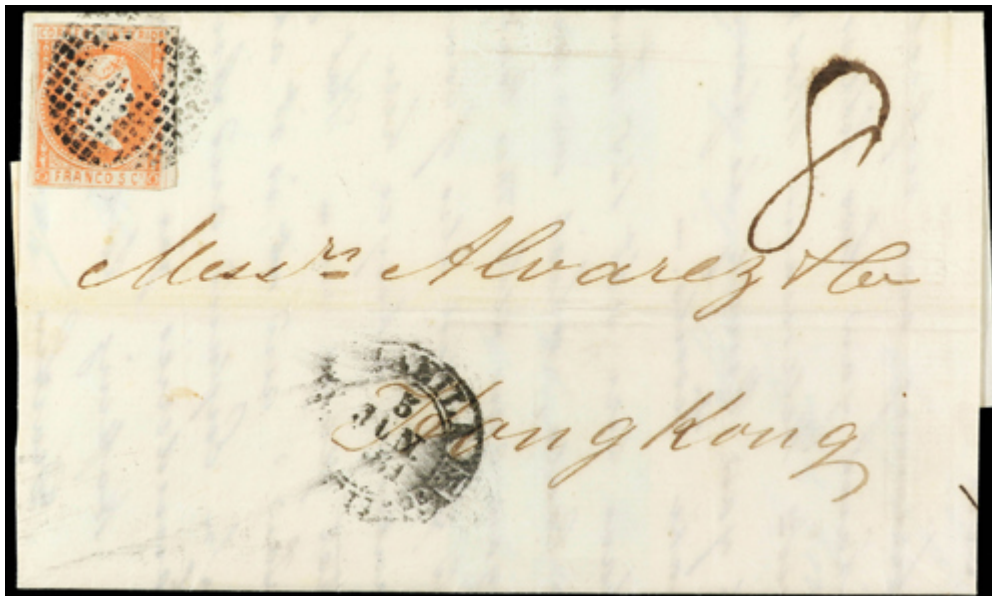 FRANCO 5 Cs
8
Messrs Alvarez & Co
5
JUN
Hong Kong